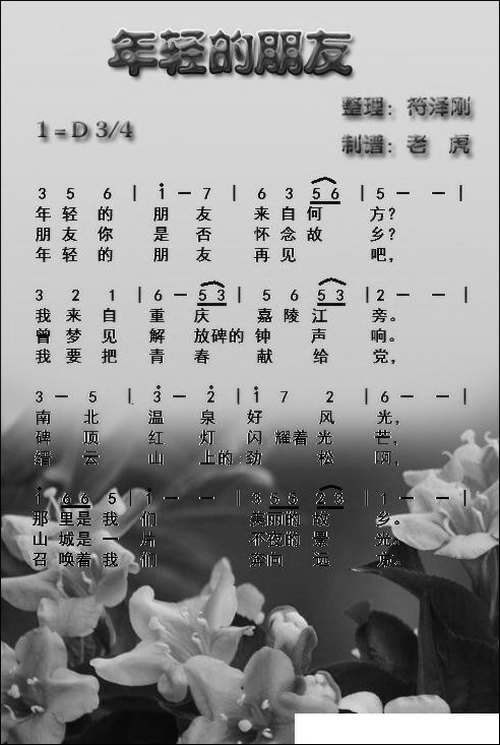 年轻的朋友
整理：符泽刚
1=D 3/4
制谱：老 虎
3 5 6 | i － 7 | 6 3 5 6 | 5 － － |
年 轻 的 朋 友 来 自 何 方？
朋 友 你 是 否 怀 念 故 乡？
年 轻 的 朋 友 再 见 吧，
3 2 1 | 6 － 5 3 | 5 6 5 3 | 2 － － |
我 来 自 重 庆 嘉 陵 江 旁。
曾 梦 见 解 放碑的 钟 声 响。
我 要 把 青 春 献 给 党，
3 － 5 | 3 － 2 | i 7 2 | 6 － － |
南 北 温 泉 好 风 光，
碑 顶 红 灯 闪 耀着 光 芒，
缙 云 山 上的 劲 松 啊，
i 6 6 5 | i － － | 3 5 5 2 3 | 1 － － |
那 里是 我 们 美丽的 故 乡。
山 城是 一 片 不夜的 景 光。
召 唤着 我 们 奔向 远 方。